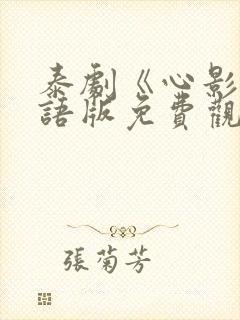 泰劇《心影
語版免費觀
張菊芳